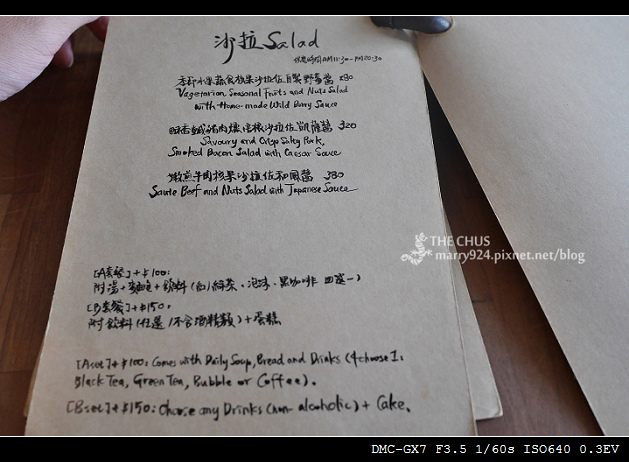 沙拉 Salad
供應時間AM11:30-PM20:30
季節水果蔬食核果沙拉佐自製野莓醬 280
Vegetarian, Seasonal Fruits and Nuts Salad
with Home-made Wild Berry Sauce
培根沙拉佐凱薩醬 320
Savoury and Crisp Salty Pork,
Smoked Bacon Salad with Caesar Sauce
嫩煎牛肉核果沙拉佐和風醬 380
Saute Beef and Nuts Salad with Japanese Sauce
THE CHUS
marry924.pixnet.net/blog
[A套餐]+$100:
附湯+麵包+飲料(紅茶、綠茶、泡沫、黑咖啡 四選一)
[B套餐]+$150:
附飲料(任選/不含酒精類)+蛋糕
[A set]+$100: Comes with Daily Soup, Bread and Drinks (4 choose 1:
Black Tea, Green Tea, Bubble or Coffee).
[B set]+$150: Choose any Drinks (non-alcoholic) + Cake.
DMC-GX7 F3.5 1/60s ISO640 0.3EV